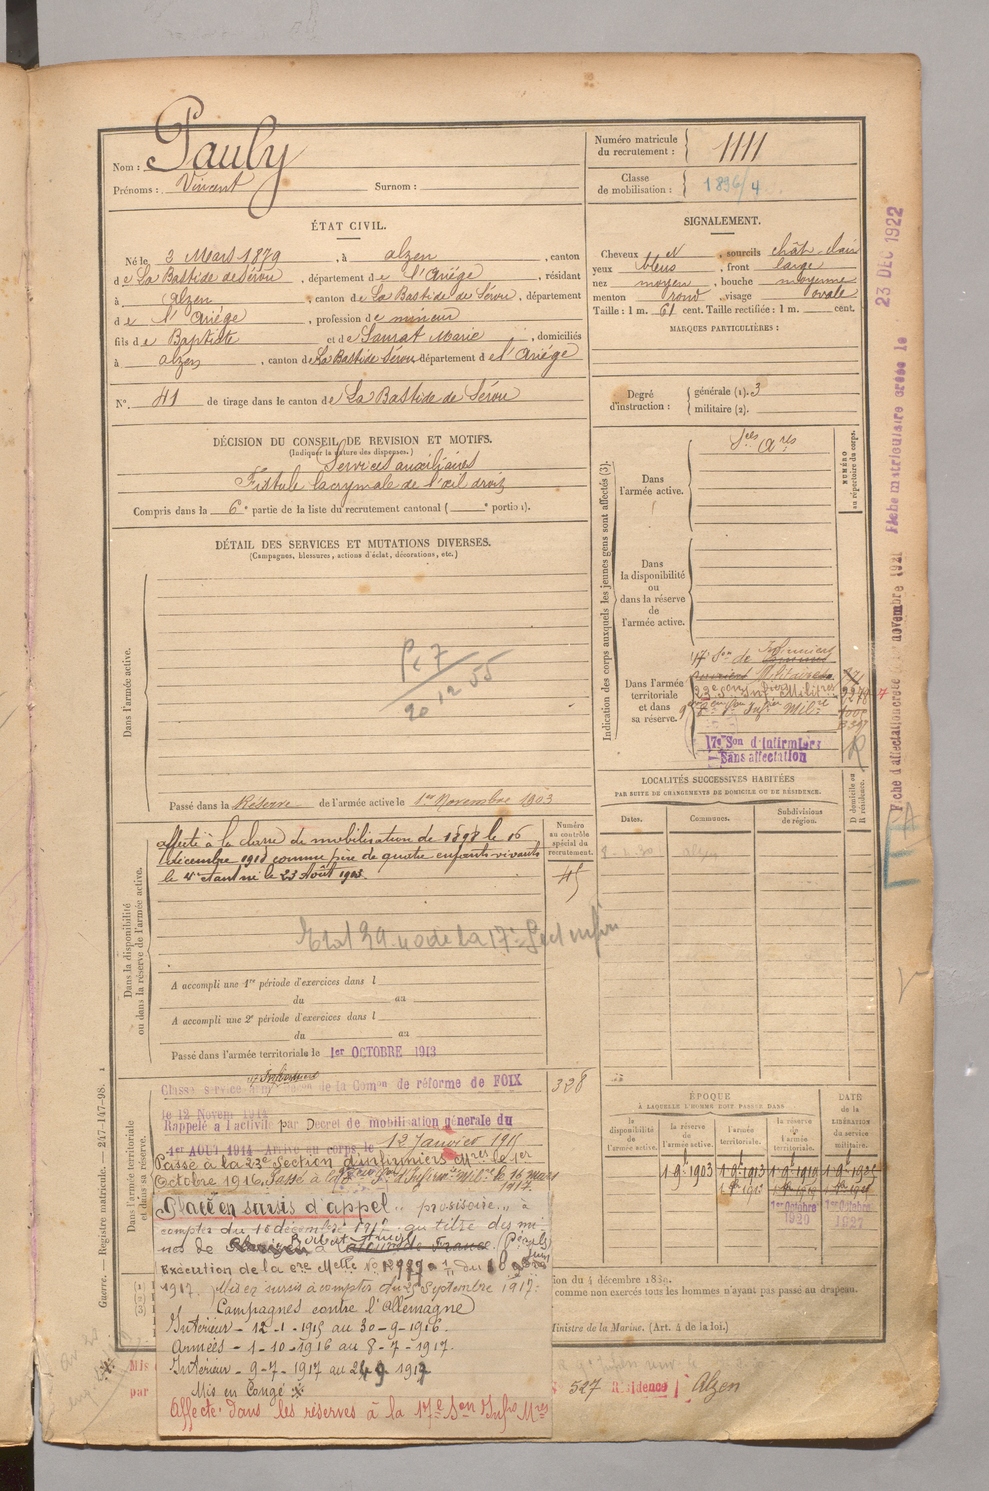 Nom : Pauly
Prénoms : Vincent Surnom :
Numéro matricule du recrutement : 1111
Classe de mobilisation : 1896/4
ÉTAT CIVIL.
Né le 3 Mars 1879, à Alzen, canton
de La Bastide de Sérou, département de l'Ariège, résidant
à Alzen, canton de La Bastide de Sérou, département
de l'Ariège, profession de mineur
fils de Baptiste et de Saurat Marie, domiciliés
à Alzen, canton de La Bastide Sérou département de l'Ariège
N° 41 de tirage dans le canton de La Bastide de Sérou
SIGNALEMENT.
Cheveux et sourcils chât clair
yeux bleus, front large
nez moyen, bouche moyenne
menton rond, visage ovale
Taille : 1 m. 61 cent. Taille rectifiée : 1 m. cent.
MARQUES PARTICULIÈRES :
Degré d'instruction : générale (1). 3
militaire (2).
DÉCISION DU CONSEIL DE REVISION ET MOTIFS.
(Indiquer la nature des dispenses.)
Services auxiliaires
Fistule lacrymale de l'œil droit
Compris dans la 6e partie de la liste du recrutement cantonal ( e portion).
DÉTAIL DES SERVICES ET MUTATIONS DIVERSES.
(Campagnes, blessures, actions d'éclat, décorations, etc.)
Dans l'armée active.
Passé dans la Réserve de l'armée active le 1er Novembre 1903
Dans la disponibilité
ou dans la réserve de l'armée active.
Numéro
au contrôle
spécial du
recrutement.
45
Affecté à la classe de mobilisation de 1893 le 16
décembre 1913 comme père de quatre enfants vivants
le 4e étant né le 23 Août 1913.
Etat 39 de la 17e Sect infir
A accompli une 1re période d'exercices dans l
du au
A accompli une 2e période d'exercices dans l
du au
Passé dans l'armée territoriale le 1er OCTOBRE 1913
Dans l'armée territoriale
et dans sa réserve.
328
de la Comon de réforme de FOIX
le 12 Novem 1914
Rappelé à l'activité par Décret de mobilisation générale du
1er AOUT 1914 Arrivé au corps le 12 Janvier 1915
Passé à la 23e Section d'infirmiers Mres le 1er
Octobre 1916. Passé à la 9e Son d'Infirm. Milres le 16 mars
1917.
Placé en sursis d'appel " provisoire " à
compter du au titre des mi
nes de
Exécution de la
1917. Mis en sursis à compter du 25 Septembre 1917:
Campagnes contre l'Allemagne
Intérieur - 12-1-1915 au 30-9-1916.
Armées - 1-10-1916 au 8-7-1917.
Intérieur - 9-7-1917 au 24 9 1917
Mis en Congé
Affecté dans les réserves à la 17e Son Infirs Mres
Indication des corps auxquels les jeunes gens sont affectés (3).
Dans
l'armée active.
Sces Ares
NUMÉRO
au répertoire du corps.
Dans
la disponibilité
ou
dans la réserve
de
l'armée active.
Dans l'armée
territoriale
et dans
sa réserve.
17e Son de Infirmiers
Militaires
23e Son Inf. Militres
Infirs Milre
17e Son d'Infirmiers
Sans affectation
LOCALITÉS SUCCESSIVES HABITÉES
PAR SUITE DE CHANGEMENTS DE DOMICILE OU DE RÉSIDENCE.
Dates. Communes. Subdivisions
de région.
D domicile ou
R résidence.
ÉPOQUE
À LAQUELLE L'HOMME DOIT PASSER DANS
la
disponibilité
de
l'armée active.
la réserve
de
l'armée active.
l'armée
territoriale.
la réserve
de
l'armée
territoriale.
DATE
de la
LIBÉRATION
du service
militaire.
1 9 1903 1 9 1913 1 9 1919 1 9 1925
1er Octobre
1920
1er Octobre
1927
ion du 4 décembre 1889.
comme non exercés tous les hommes n'ayant pas passé au drapeau.
Ministre de la Marine. (Art. 4 de la loi.)
Mis
par
527 Résidence Alzen
Guerre. — Registre matricule. — 247-147-98.
Fiche matriculaire créée le 23 DEC 1922
Fiche d'affectation créée novembre 1921